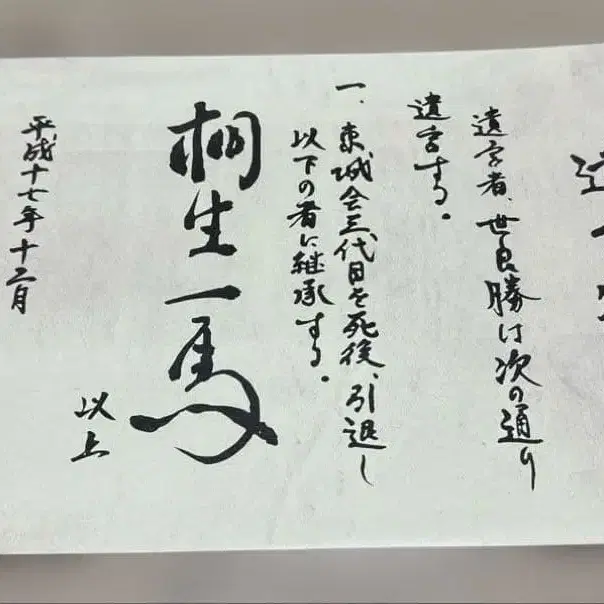 遺言者、世良勝は次の通り
遺言する。
一、東城会三代目を死後、引退し
以下の者に継承する。
桐生一馬
以上
平成十七年十二月